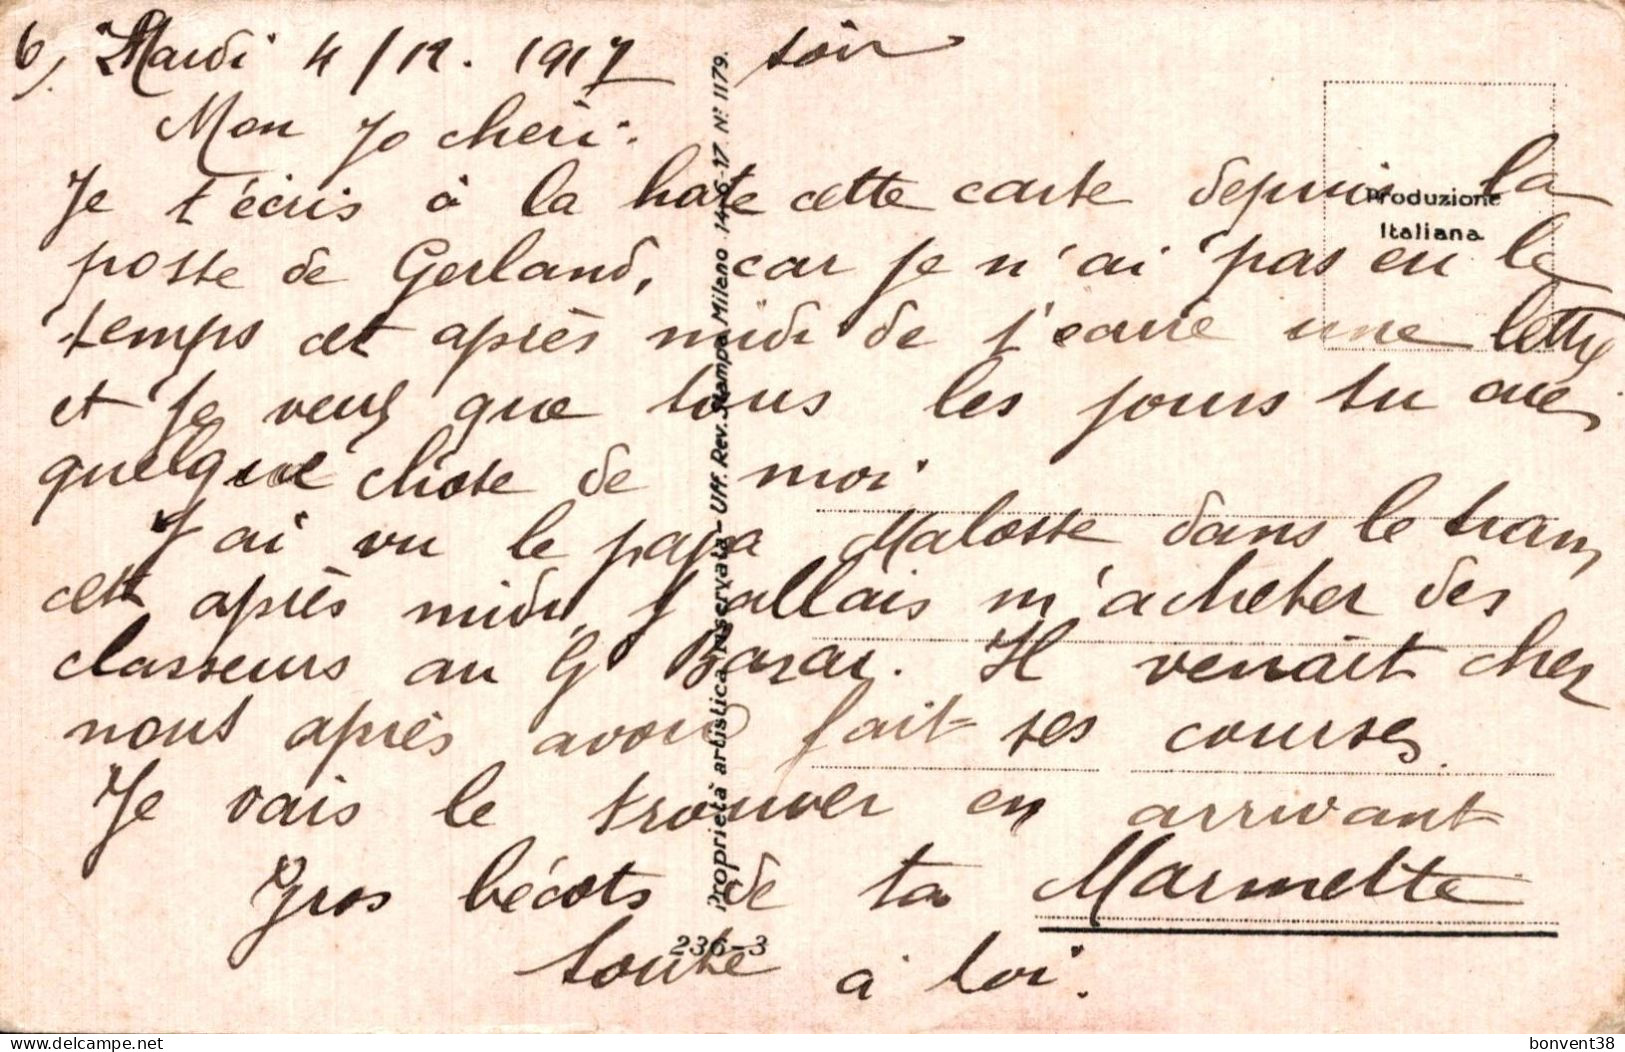 6) Mardi 4/12. 1917 soir
Mon Jo cheri.
Je t'écris à la hate cette carte depuis la
poste de Gerland, car je n'ai pas eu le
temps cet après midi de t'écrire une lettre
et je veux que tous les jours tu aies
quelque chose de moi
J'ai vu le papa Malosse dans le tram,
cett après midi, j'allais m'acheter des
classeurs au Gd Bazar. Il venait chez
nous après avoir fait ses courses.
Je vais le trouver en arrivant
Gros bécots de ta Marmette
toute à toi.
Produzione
Italiana
Proprietà artistica riservata - Uff. Rev. Stampa Milano 14-6-17 No. 1179.
236-3
bonvent38
delcampe.net